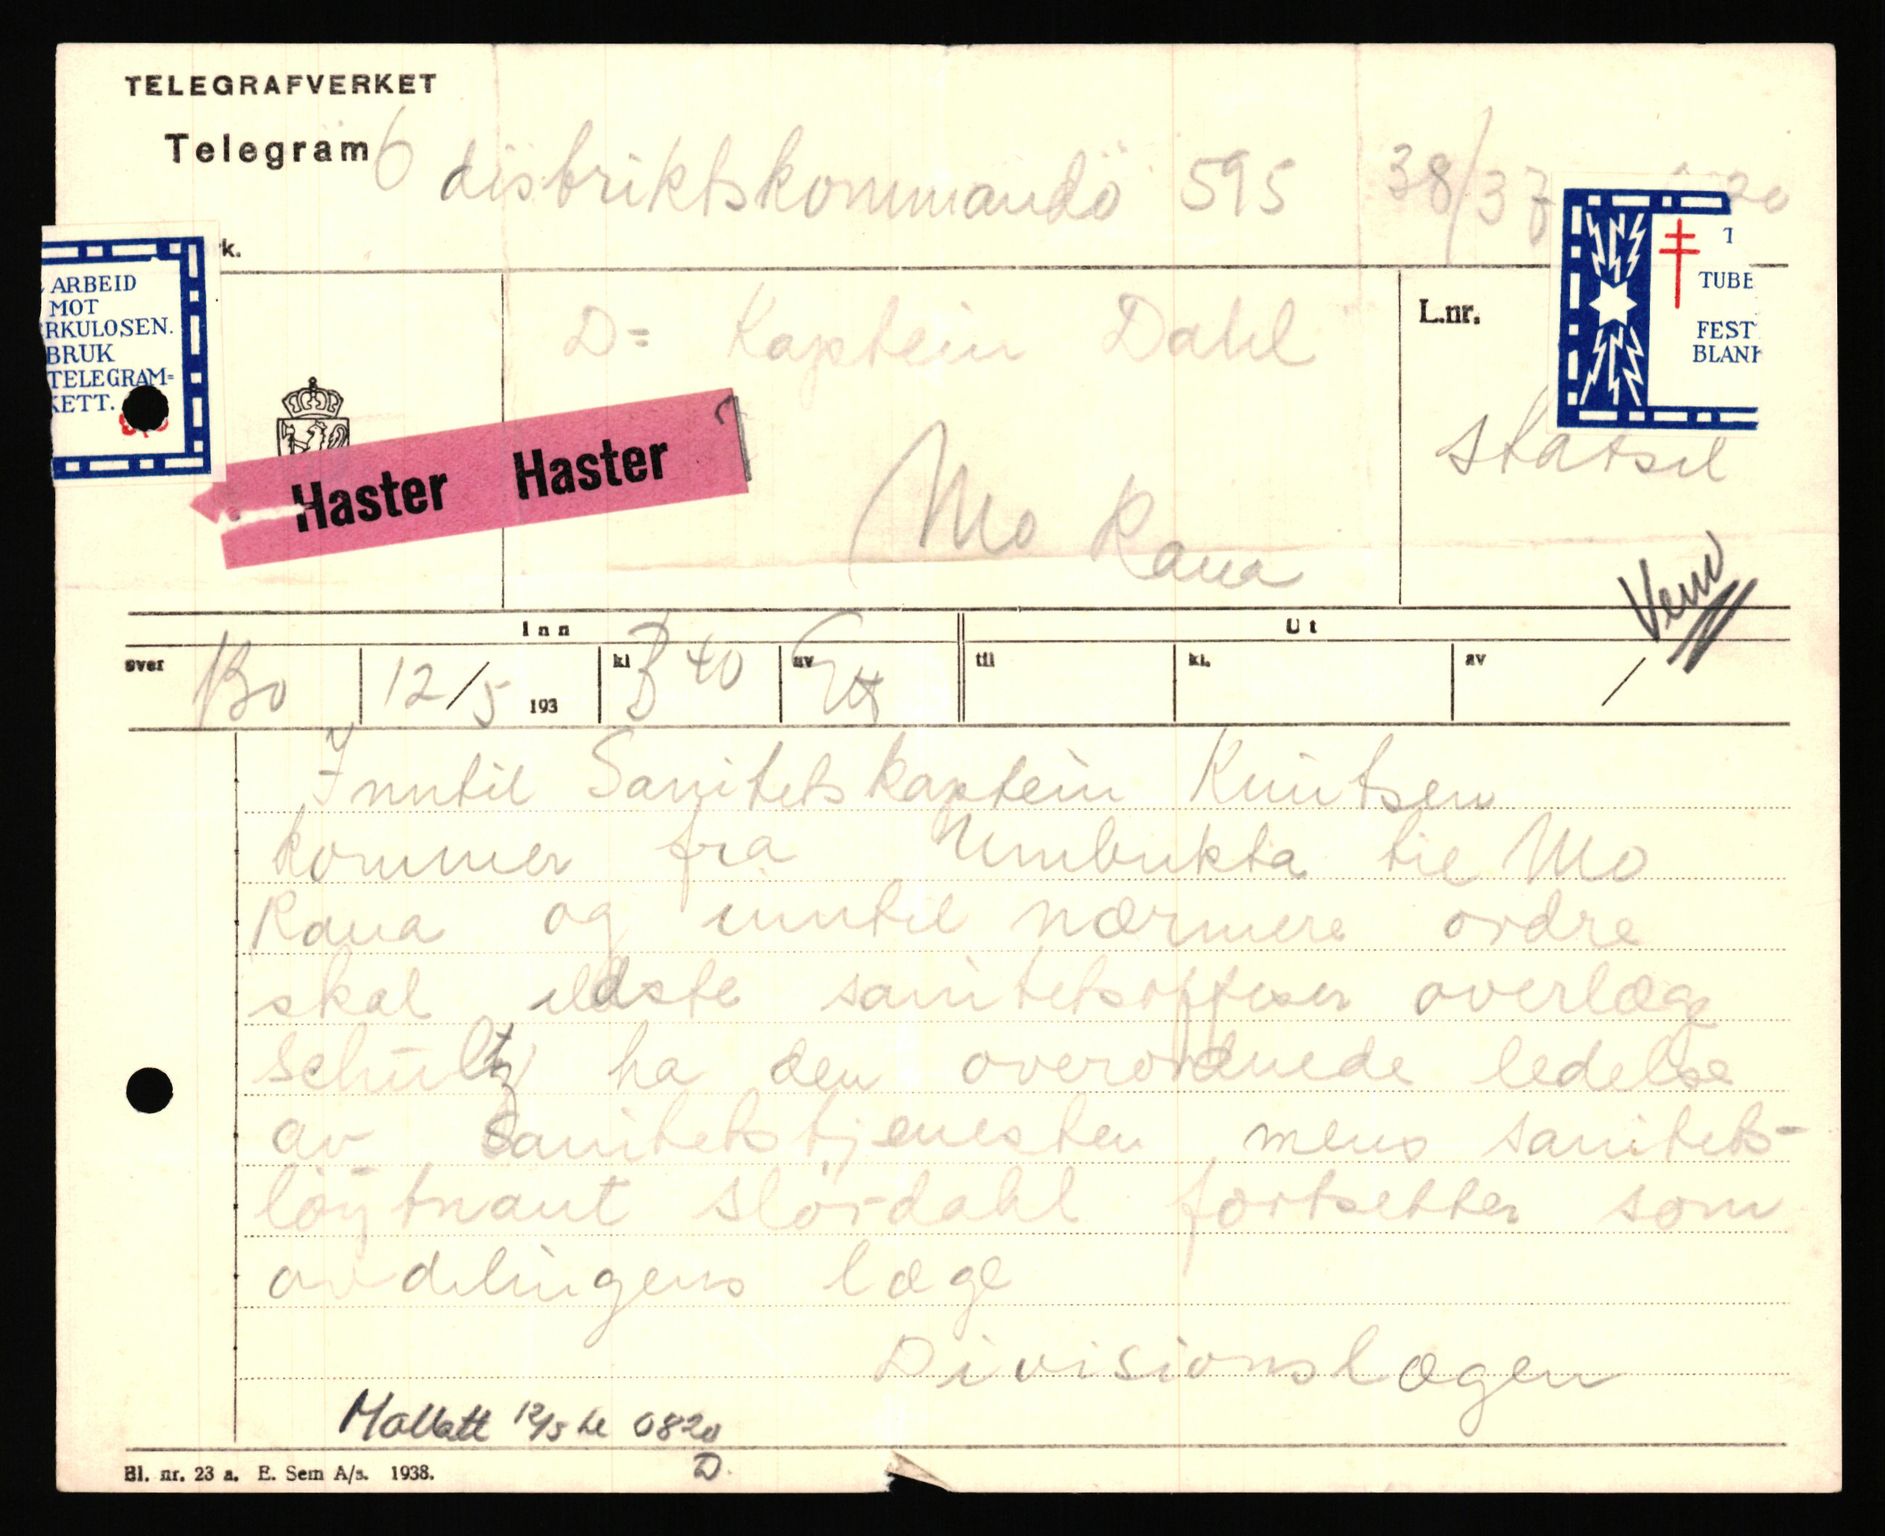 TELEGRAFVERKET
Telegram
6 distriktskommando 595 38/37 20
k.
ARBEID
MOT
RKULOSEN.
BRUK
TELEGRAM=
KETT.
D= Kaptein Dahl
L.nr.
TUBE
FEST
BLANK
Haster Haster
Mo Rana
statsil
Inn Ut
over Bo 12/5 193 kl 40 av til kl. av
Inntil Sanitetskaptein Knutsen
kommer fra Umbukta til Mo
Rana og inntil nærmere ordre
skal eldste sanitetsoffiser overlæge
Schultz ha den overordnede ledelse
av Sanitetstjenesten mens sanitets-
løytnant Slørdahl fortsetter som
avdelingens læge
Divisionslægen
Mottatt 12/5 kl 0820
D.
Bl. nr. 23 a. E. Sem A/s. 1938.